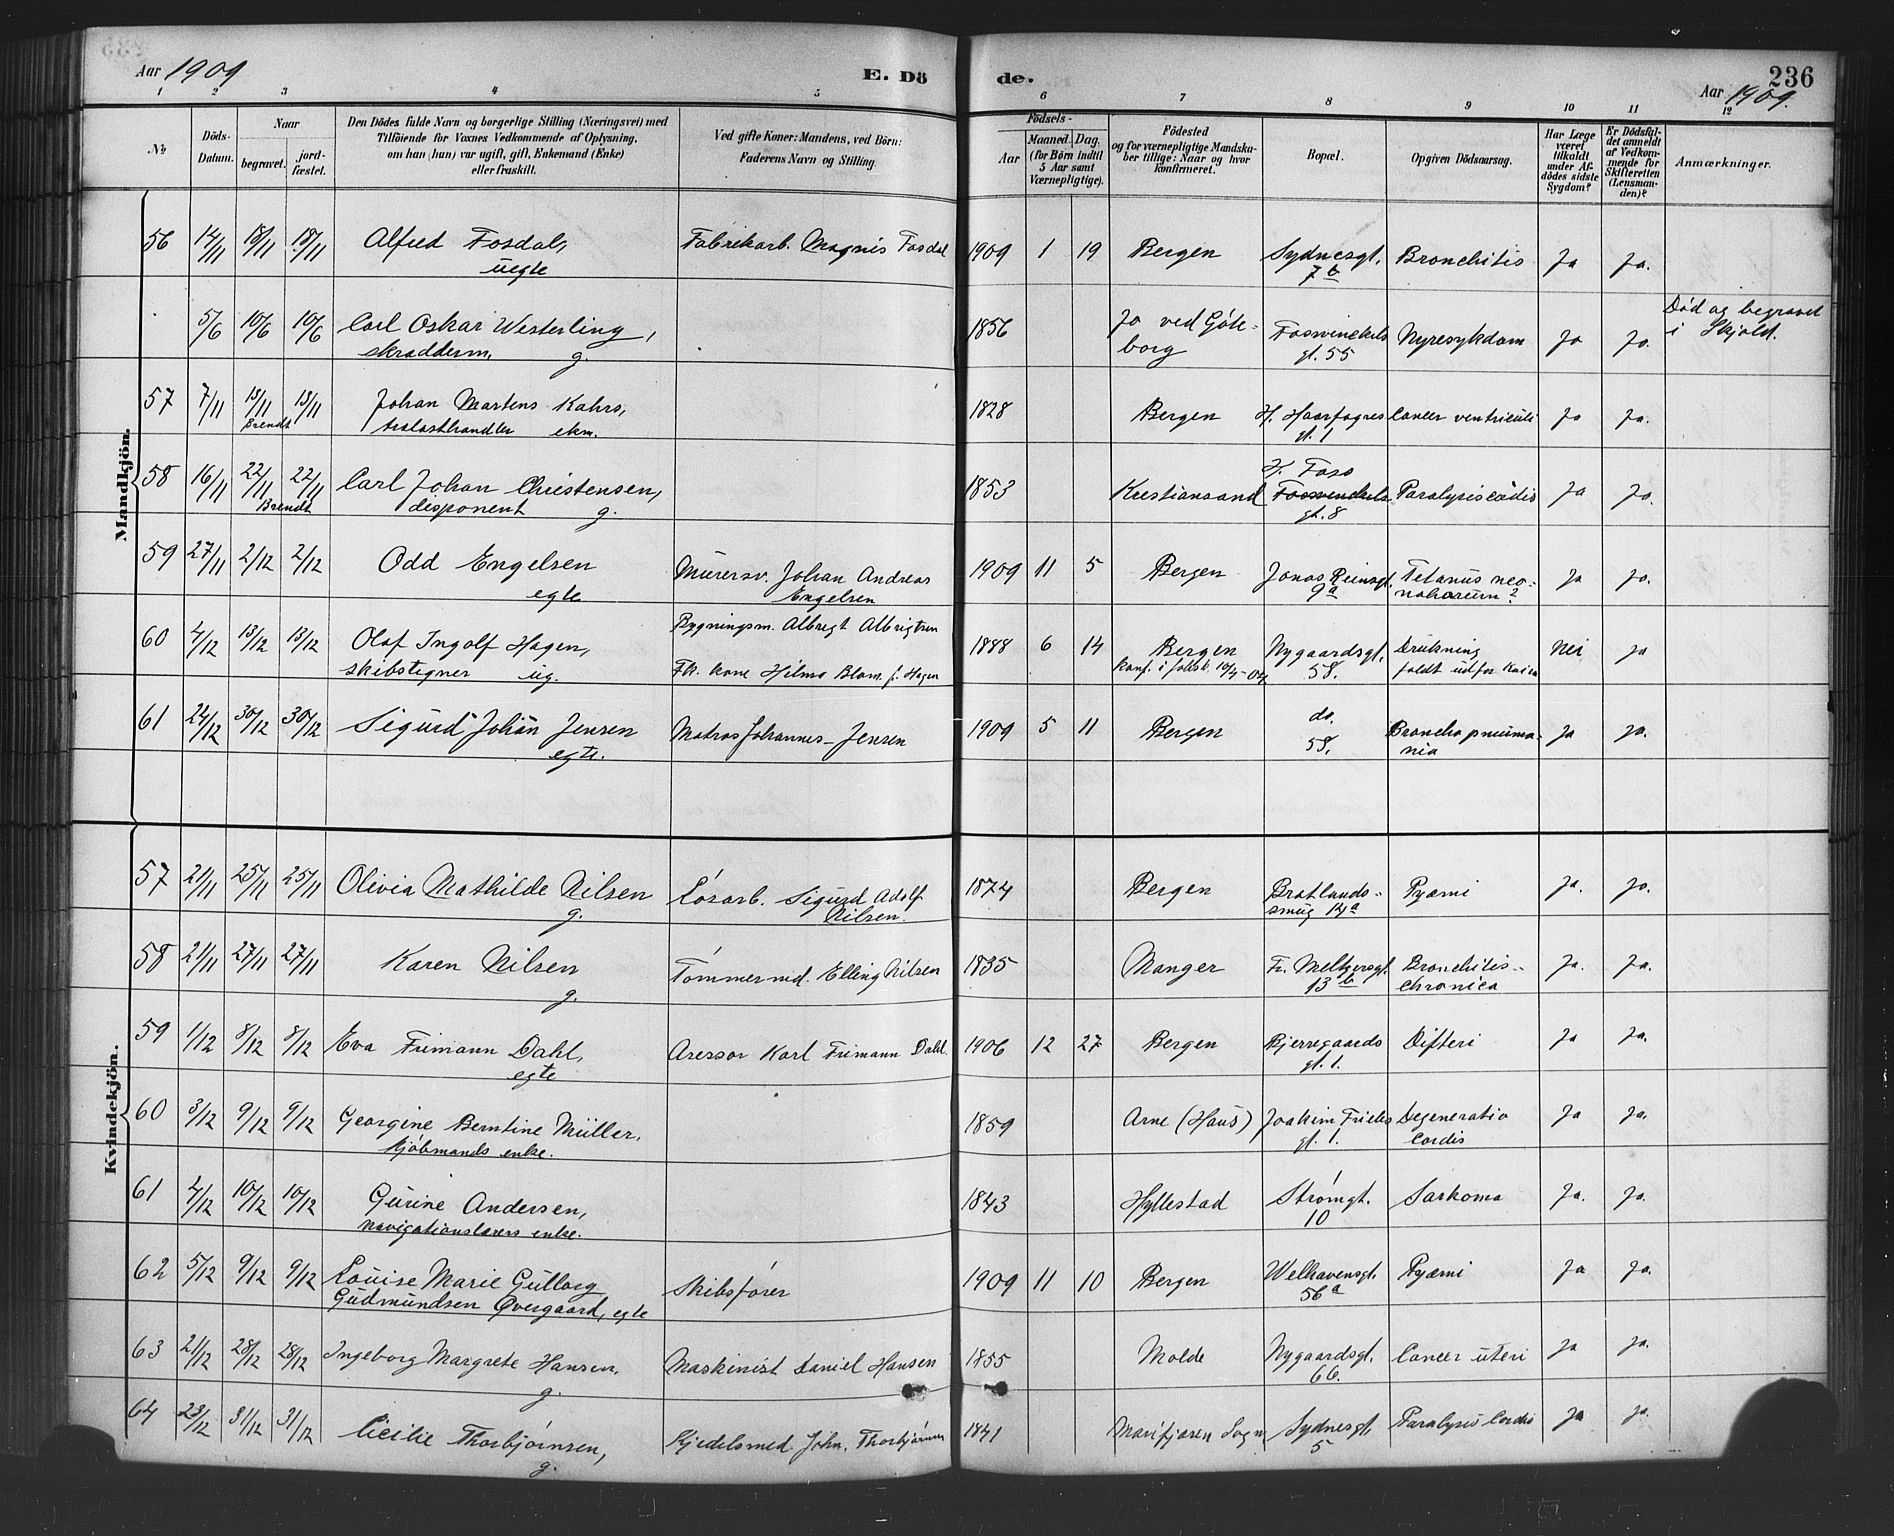 Aar 1909
E. Dö
de.
236
Aar 1909.
1 2 3 4 5 6 7 8 9 10 11 12
No.
Döds-Datum.
Naar
begravet.
jord-fæstet.
Den Dödes fulde Navn og borgerlige Stilling (Næringsvei) med
Tilföiende for Voxnes Vedkommende af Oplysning,
om han (hun) var ugift, gift, Enkemand (Enke)
eller fraskilt.
Ved gifte Koner: Mandens, ved Börn:
Faderens Navn og Stilling.
Födsels-
Aar
Maaned. Dag.
(for Börn indtil
5 Aar samt
Værnepligtige).
Födested
og for værnepligtige Mandska-
ber tillige: Naar og hvor
konfirmeret.
Bopæl.
Opgiven Dödsaarsag.
Har Læge
været
tilkaldt
under Af-
dödes sidste
Sygdom?
Er Dödsfal-
det anmeldt
af Vedkom-
mende for
Skifteretten
(Lensman-
den)?
Anmærkninger.
Mandkjön.
56 14/11 18/11 18/11 Alfred Fosdal, Fabrikarb. Magnus Fosdal 1909 1 19 Bergen Sydnesgt. Bronchitis Ja Ja.
uegte 7b
5/6 10/6 10/6 Carl Oskar Westerling, 1856 Jo ved Göte- Fosswinckels Nyresykdom Ja Ja. Död og begravet
skrædderm. g. borg gt. 55 i Skjold.
57 7/11 13/11 13/11 Johan Martens Kahrs, 1828 Bergen H. Haarfagres Cancer ventriculi Ja Ja.
Brendt trælasthandler ekm. gt. 1
58 16/11 22/11 22/11 Carl Johan Christensen, 1853 Kristiansand K. Foss Fosswinckels Paralysis cordis Ja Ja.
Brendt disponent g. gt. 8
59 27/11 2/12 2/12 Odd Engelsen Murersv. Johan Andreas 1909 11 5 Bergen Jonas Reinsgt. Tetanus neo- Ja Ja.
egte Engelsen 9a natorum?
60 4/12 13/12 13/12 Olaf Ingolf Hagen, Bygningsm. Albregt Albrigtsen 1888 6 14 Bergen Nygaardsgt. Drukning Nei Ja
skibstegner ug. Frk. kone Hilma Blom f. Hagen konf. i Johsk. 10/4-04 58. faldt udfor Kaien
61 24/12 30/12 30/12 Sigurd Johan Jensen Matros Johannes Jensen 1909 5 11 Bergen do. Bronchopneumo- Ja Ja.
egte. 58. nia
Kvindekjön.
57 21/11 25/11 25/11 Olivia Mathilde Nilsen Lösarb. Sigurd Adolf 1874 Bergen Bratlands- Pyæmi Ja. Ja.
g. Nilsen. smug 14a
58 21/11 27/11 27/11 Karen Nilsen Tömmermd. Elling Nilsen 1835 Manger Fr. Meltzersgt. Bronchitis Ja. Ja.
g. 13b chronica
59 1/12 8/12 8/12 Eva Frimann Dahl, Assessor Karl Frimann Dahl. 1906 12 27 Bergen Bjerregaards Difteri Ja Ja.
egte gt. 1.
60 3/12 9/12 9/12 Georgine Berntine Müller, 1859 Arne (Haus) Joakim Frieles Degeneratio Ja Ja.
kjöbmands enke. gt. 1. Cordis
61 4/12 10/12 10/12 Gurine Andersen, 1843 Hyllestad Strömgt. Sarkoma Ja. Ja.
navigationslærers enke. 10
62 5/12 9/12 9/12 Louise Marie Gulborg Skibsförer 1909 11 10 Bergen Welhavensgt. Pyæmi Ja Ja.
Gudmundsen Övergaard, egte 56a
63 21/12 28/12 28/12 Ingeborg Margrete Hansen, Maskinist Daniel Hansen 1855 Molde Nygaardsgt. Cancer uteri Ja Ja.
g. 66.
64 23/12 31/12 31/12 Cicilie Thorbjörnsen, Kjedelsmed John. Thorbjörnsen 1841 Marifjæren Sogn Sydnesgt. Paralysis Cordis Ja Ja.
g. 5